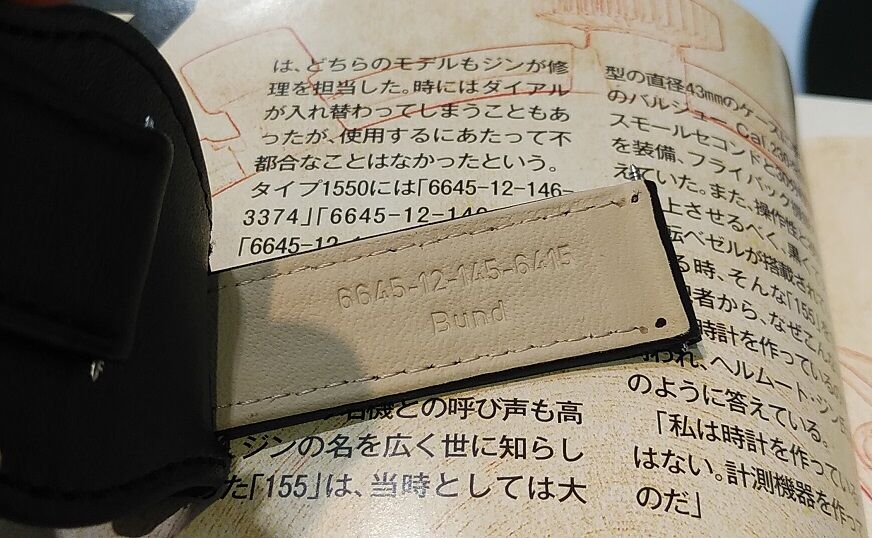 は、どちらのモデルもジンが修
理を担当した。時にはダイアル
が入れ替わってしまうこともあ
ったが、使用するにあたって不
都合なことはなかったという。
タイプ1550には「6645-12-146-
3374」「6645-12-14
「6645-12
6645-12-145-6415
Bund
名機との呼び声も高
ジンの名を広く世に知らし
た「155」は、当時としては大
型の直径43mmのケース
のバルジュー Cal.230
スモールセコンドと30分
を装備、フライバック機
えていた。また、操作性と
上させるべく、黒く
転ベゼルが搭載されて
る時、そんな「155」を
者から、なぜこん
時計を作っているの
われ、ヘルムート・ジン
のように答えている。
「私は時計を作ってい
はない。計測機器を作っ
のだ」